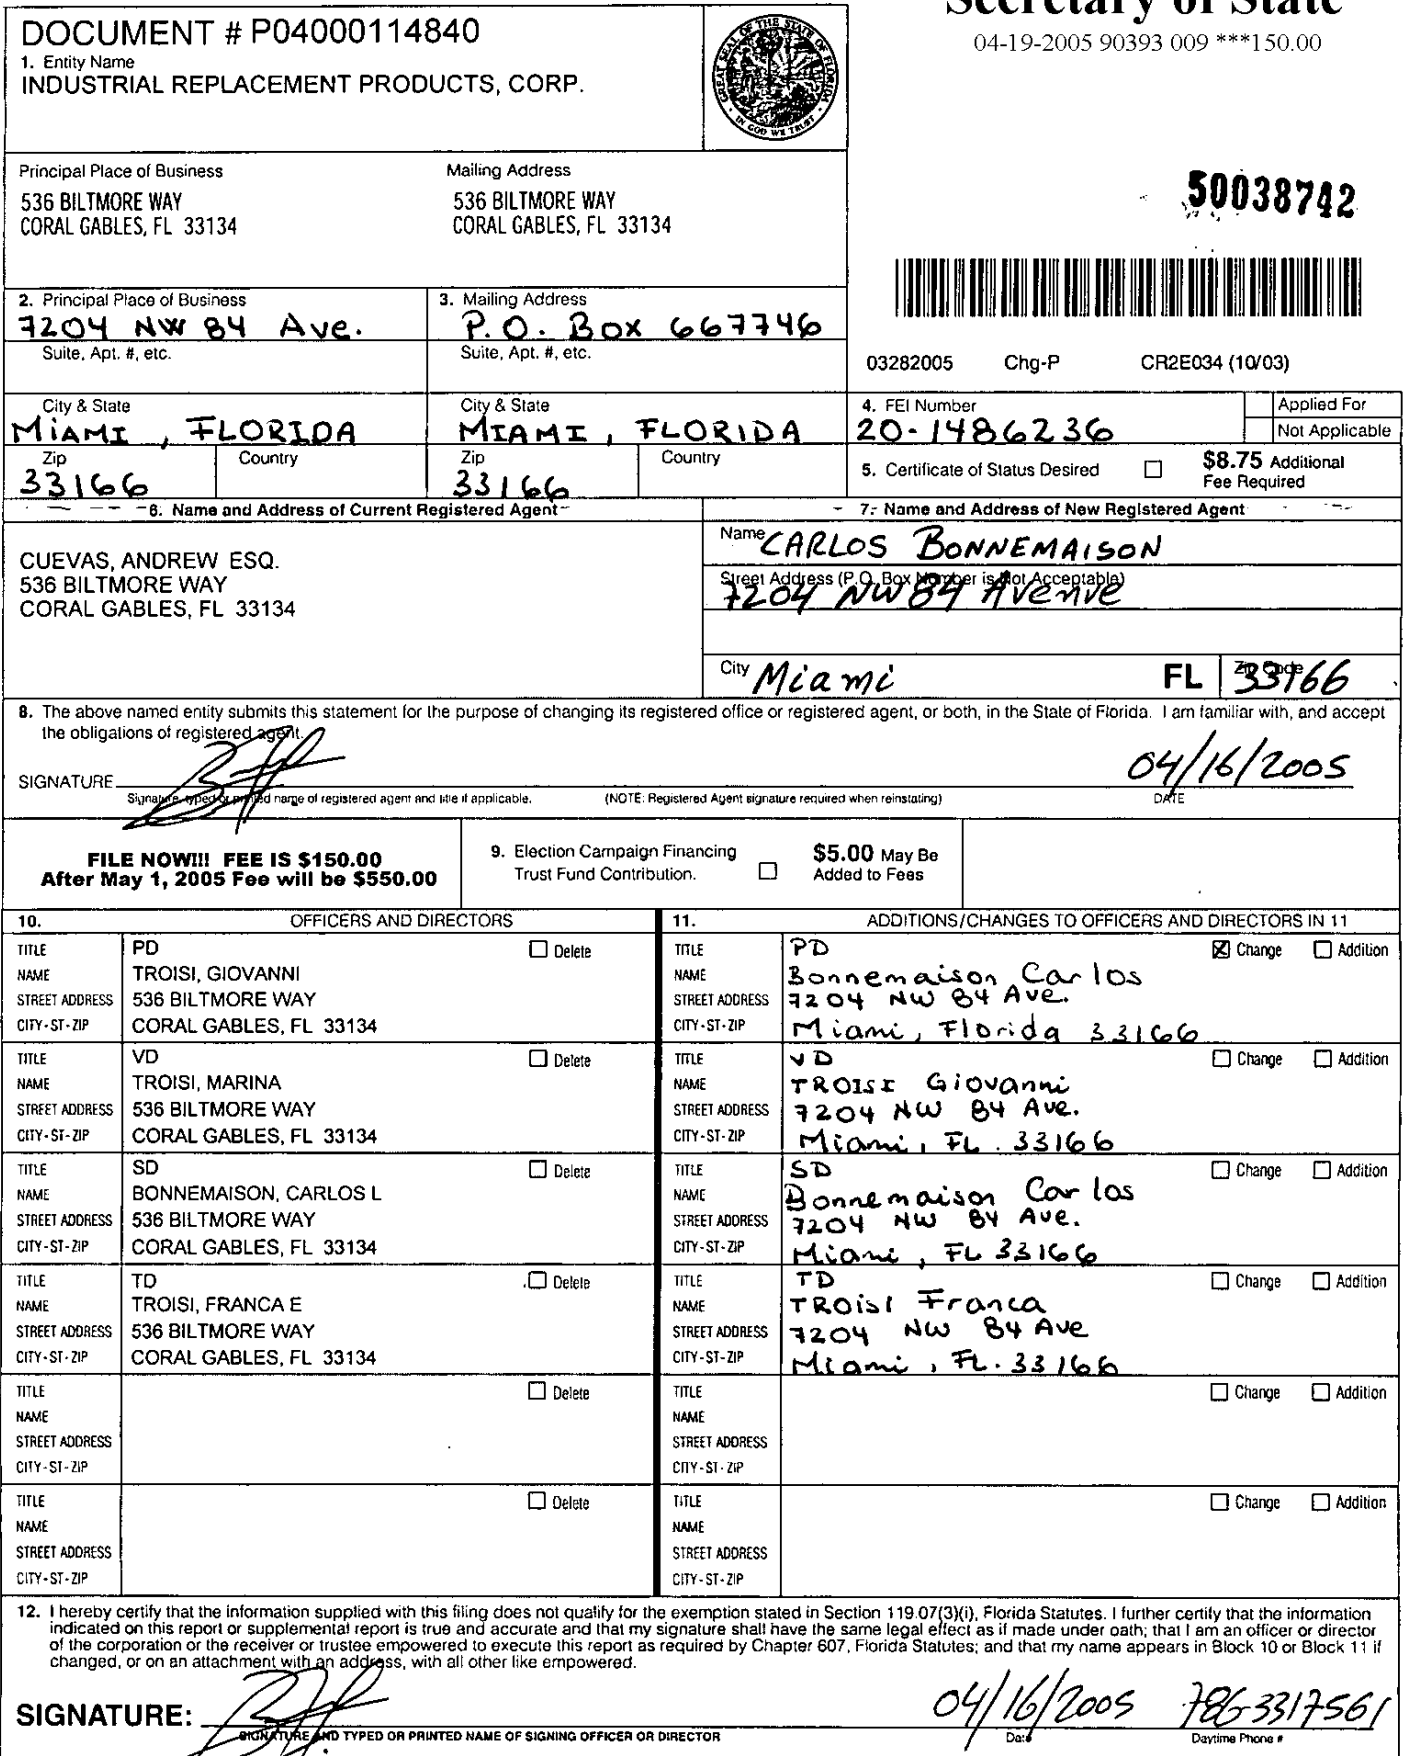 Secretary of State
04-19-2005 90393 009 ***150.00
DOCUMENT # P04000114840
1. Entity Name
INDUSTRIAL REPLACEMENT PRODUCTS, CORP.
GREAT SEAL OF THE STATE OF FLORIDA
IN GOD WE TRUST
Principal Place of Business
536 BILTMORE WAY
CORAL GABLES, FL 33134
Mailing Address
536 BILTMORE WAY
CORAL GABLES, FL 33134
50038742
2. Principal Place of Business
7204 NW 84 Ave.
Suite, Apt. #, etc.
3. Mailing Address
P.O. Box 667746
Suite, Apt. #, etc.
03282005 Chg-P CR2E034 (10/03)
City & State
MiAMI, FLORIDA
City & State
MIAMI, FLORIDA
Zip
33166
Country
Zip
33166
Country
4. FEI Number
20-1486236
Applied For
Not Applicable
5. Certificate of Status Desired
$8.75 Additional
Fee Required
6. Name and Address of Current Registered Agent
CUEVAS, ANDREW ESQ.
536 BILTMORE WAY
CORAL GABLES, FL 33134
7. Name and Address of New Registered Agent
Name CARLOS BONNEMAISON
Street Address (P.O. Box Number is Not Acceptable)
7204 NW 84 Avenue
City Miami FL Zip Code 33166
8. The above named entity submits this statement for the purpose of changing its registered office or registered agent, or both, in the State of Florida. I am familiar with, and accept
the obligations of registered agent.
SIGNATURE
04/16/2005
Signature, typed or printed name of registered agent and title if applicable. (NOTE: Registered Agent signature required when reinstating) DATE
FILE NOW!!! FEE IS $150.00
After May 1, 2005 Fee will be $550.00
9. Election Campaign Financing
Trust Fund Contribution.
$5.00 May Be
Added to Fees
10. OFFICERS AND DIRECTORS
TITLE PD Delete
NAME TROISI, GIOVANNI
STREET ADDRESS 536 BILTMORE WAY
CITY-ST-ZIP CORAL GABLES, FL 33134
TITLE VD Delete
NAME TROISI, MARINA
STREET ADDRESS 536 BILTMORE WAY
CITY-ST-ZIP CORAL GABLES, FL 33134
TITLE SD Delete
NAME BONNEMAISON, CARLOS L
STREET ADDRESS 536 BILTMORE WAY
CITY-ST-ZIP CORAL GABLES, FL 33134
TITLE TD Delete
NAME TROISI, FRANCA E
STREET ADDRESS 536 BILTMORE WAY
CITY-ST-ZIP CORAL GABLES, FL 33134
TITLE Delete
NAME
STREET ADDRESS
CITY-ST-ZIP
TITLE Delete
NAME
STREET ADDRESS
CITY-ST-ZIP
11. ADDITIONS/CHANGES TO OFFICERS AND DIRECTORS IN 11
TITLE PD Change Addition
NAME Bonnemaison Carlos
STREET ADDRESS 7204 NW 84 Ave.
CITY-ST-ZIP Miami, Florida 33166
TITLE VD Change Addition
NAME TROISI Giovanni
STREET ADDRESS 7204 NW 84 Ave.
CITY-ST-ZIP Miami, FL. 33166
TITLE SD Change Addition
NAME Bonnemaison Carlos
STREET ADDRESS 7204 NW 84 Ave.
CITY-ST-ZIP Miami, FL 33166
TITLE TD Change Addition
NAME TROISI Franca
STREET ADDRESS 7204 NW 84 Ave
CITY-ST-ZIP Miami, FL. 33166
TITLE Change Addition
NAME
STREET ADDRESS
CITY-ST-ZIP
TITLE Change Addition
NAME
STREET ADDRESS
CITY-ST-ZIP
12. I hereby certify that the information supplied with this filing does not qualify for the exemption stated in Section 119.07(3)(i), Florida Statutes. I further certify that the information
indicated on this report or supplemental report is true and accurate and that my signature shall have the same legal effect as if made under oath; that I am an officer or director
of the corporation or the receiver or trustee empowered to execute this report as required by Chapter 607, Florida Statutes; and that my name appears in Block 10 or Block 11 if
changed, or on an attachment with an address, with all other like empowered.
SIGNATURE:
04/16/2005 7863317561
SIGNATURE AND TYPED OR PRINTED NAME OF SIGNING OFFICER OR DIRECTOR Date Daytime Phone #